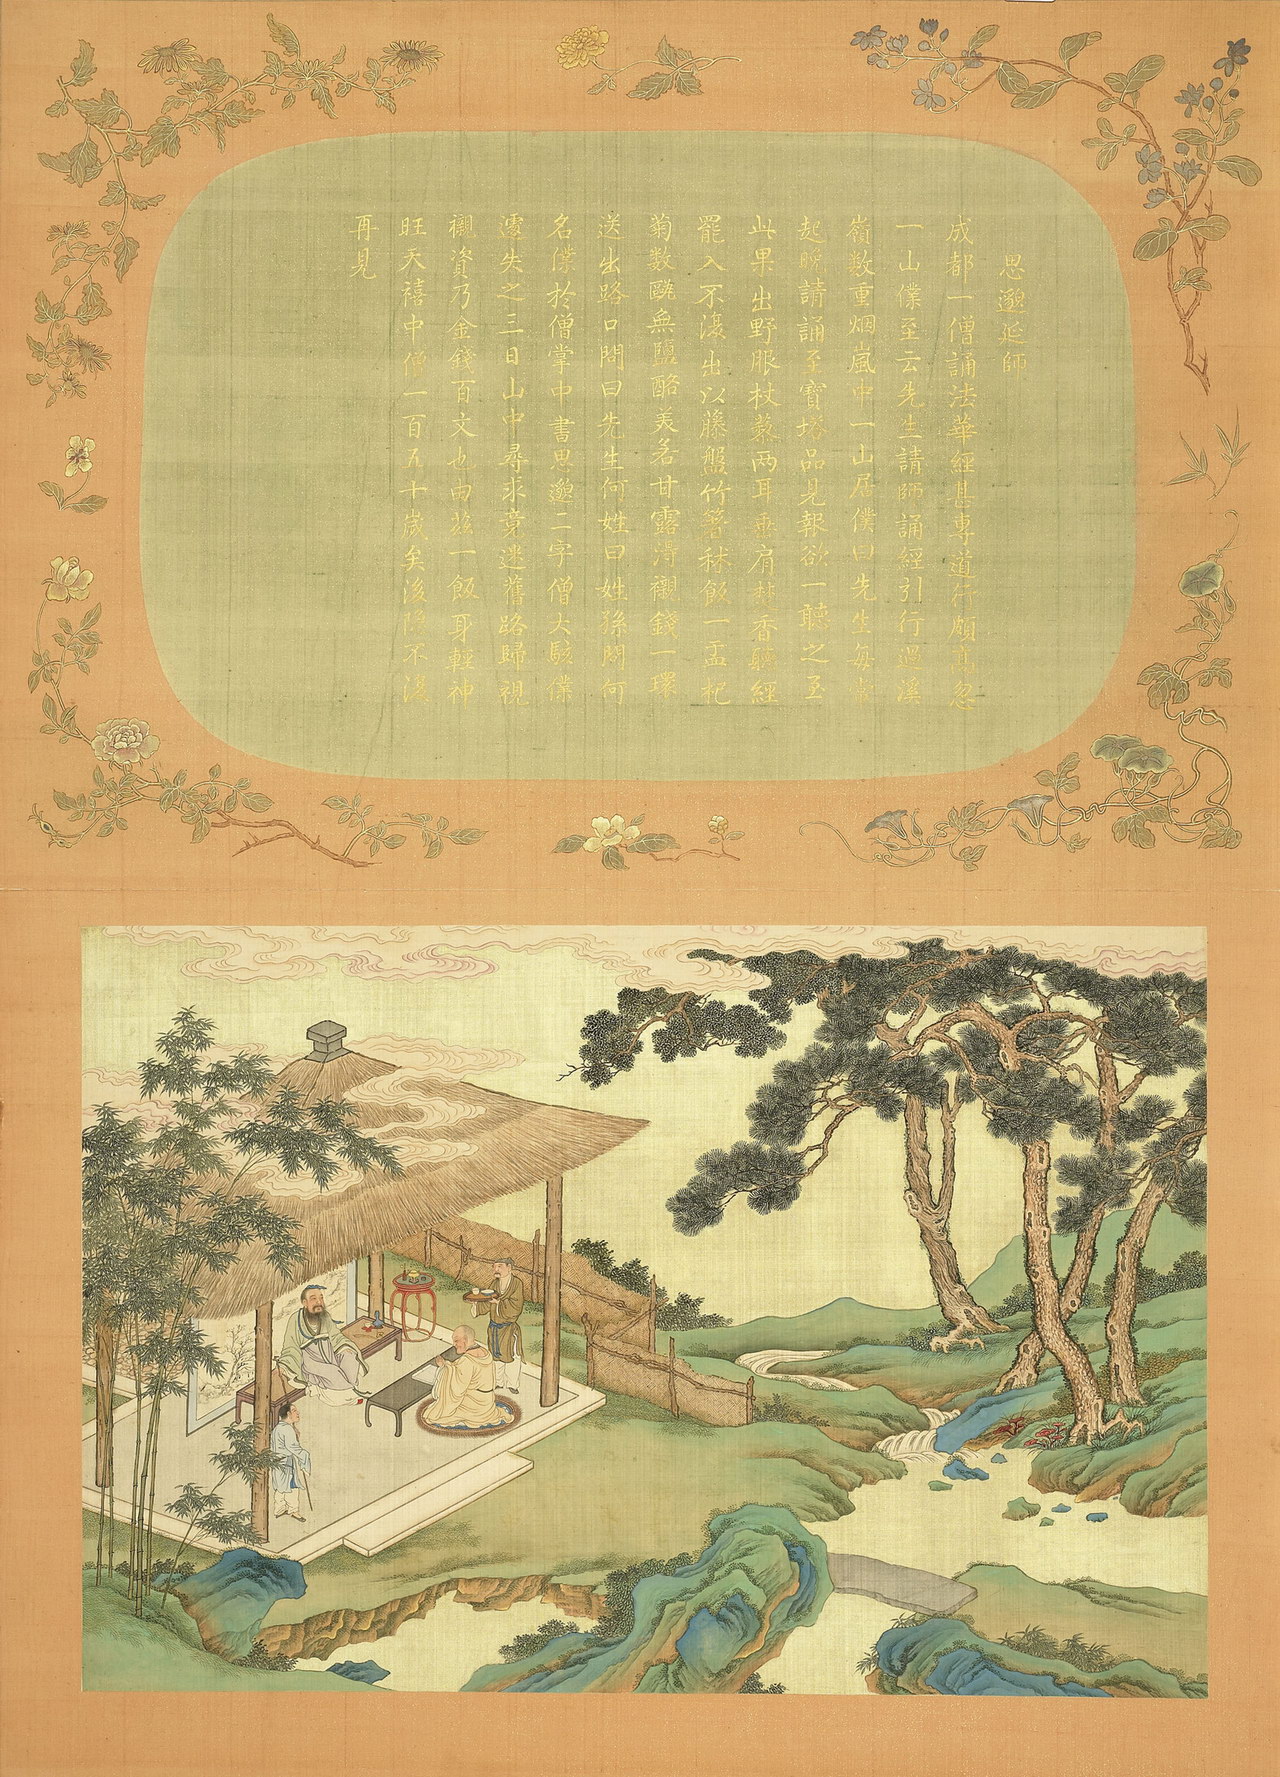 思邈延師
成都一僧誦法華經甚專道行頗高忽
一山僕至云先生請師誦經引行過溪
嶺數重烟嵐中一山居僕曰先生每常
起晚請誦至寶塔品見報欲一聽之至
此果出野服杖藜兩耳垂肩焚香聽經
罷入不復出以藤盤竹箸秫飯一盂杞
菊數甌無鹽酪美若甘露得襯錢一環
送出路口問曰先生何姓曰姓孫問何
名僕於僧掌中書思邈二字僧大駭僕
遽失之三日山中尋求竟迷舊路歸視
襯資乃金錢百文也由茲一飯身輕神
旺天禧中僧一百五十歲矣後隱不復
再見